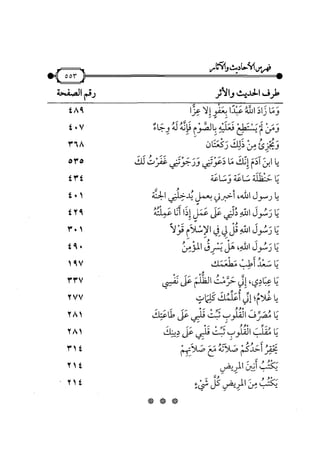 فهرس الأحاديث والآثار
٥٥٣
طرف الحديث والأثر رقم الصفحة
وَمَا زَادَ اللهُ عَبْدًا بِعَفْوٍ إِلا عِزًّا ٤٨٩
وَمَنْ لَمْ يَسْتَطِعْ فَعَلَيْهِ بِالصَّوْمِ فَإِنَّهُ لَهُ وِجَاءٌ ٤٠٧
وَيُجْزِئُ مِنْ ذَلِكَ رَكْعَتَانِ ٣٦٨
يا ابْنَ آدَمَ إِنَّكَ مَا دَعَوْتَنِي وَرَجَوْتَنِي غَفَرْتُ لَكَ ٥٣٥
يَا حَنْظَلَةُ سَاعَةً وَسَاعَةً ٤٣٤
يا رسول الله، أخبرني بعملٍ يُدخِلُني الجنَّةَ ٤٠١
يَا رَسُولَ اللهِ دُلَّنِي عَلَى عَمَلٍ إِذَا أَنَا عَمِلْتُهُ ٤٢٩
يَا رَسُولَ اللهِ قُلْ لِي فِي الإِسْلَامِ قَوْلاً ٣٠١
يَا رَسُولَ اللهِ، هَلْ يَسْرِقُ المُؤْمِنُ ٤٩٠
يَا سَعْدُ أَطِبْ مَطْعَمَكَ ١٩٧
يَا عِبَادِي، إِنِّي حَرَّمْتُ الظُّلْمَ عَلَى نَفْسِي ٣٣٧
يا غُلَامُ؛ إِنِّي أُعَلِّمُكَ كَلِمَاتٍ ٢٧٧
يَا مُصَرِّفَ الْقُلُوبِ ثَبِّتْ قَلْبِي عَلَى طَاعَتِكَ ٢٨١
يَا مُقَلِّبَ الْقُلُوبِ ثَبِّتْ قَلْبِي عَلَى دِينِكَ ٢٨١
يَحْقِرُ أَحَدُكُمْ صَلَاتَهُ مَعَ صَلَاتِهِمْ ٣١٤
يَكْتُبُ أَنِينَ المَرِيضِ ٢١٤
يَكْتُبُ مِنَ المَرِيضِ كُلَّ شَيْءٍ ٢١٤
* * *